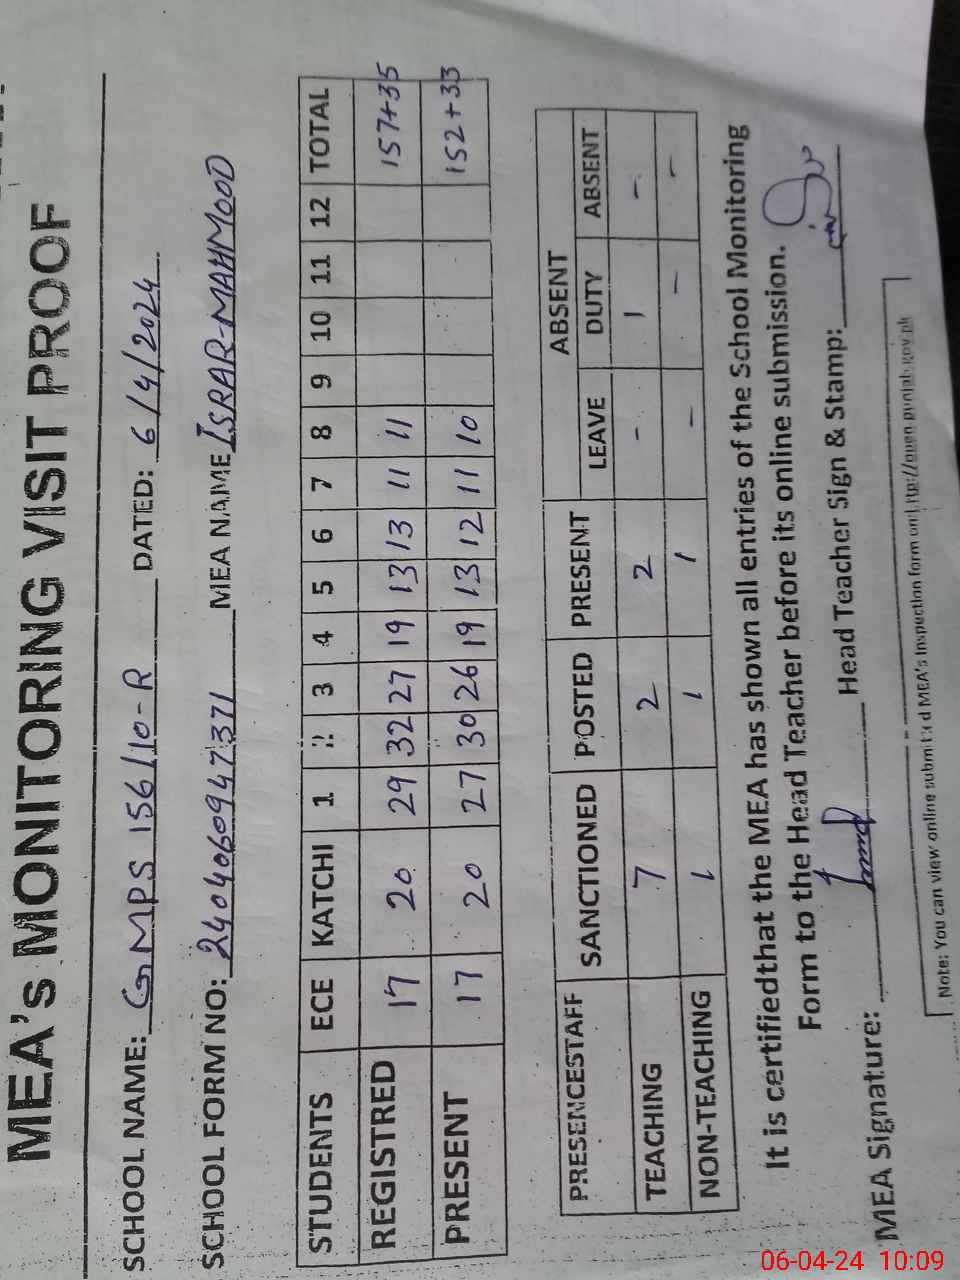 MEA's MONITORING VISIT PROOF
SCHOOL NAME: GMPS 156/10-R DATED: 6/4/2024
SCHOOL FORM NO: 2404060947371 MEA NAME ISRAR-MAHMOOD
STUDENTS ECE KATCHI 1 2 3 4 5 6 7 8 9 10 11 12 TOTAL
REGISTRED 17 20 29 32 27 19 13 13 11 11 157+35
PRESENT 17 20 27 30 26 19 13 12 11 10 152+33
PRESENCESTAFF SANCTIONED POSTED PRESENT ABSENT
LEAVE DUTY ABSENT
TEACHING 7 2 2 - 1 -
NON-TEACHING 1 1 1 - - -
It is certifiedthat the MEA has shown all entries of the School Monitoring
Form to the Head Teacher before its online submission.
MEA Signature: Head Teacher Sign & Stamp:
Note: You can view online submitted MEA's Inspection form on http://open.punjab.gov.pk
06-04-24 10:09